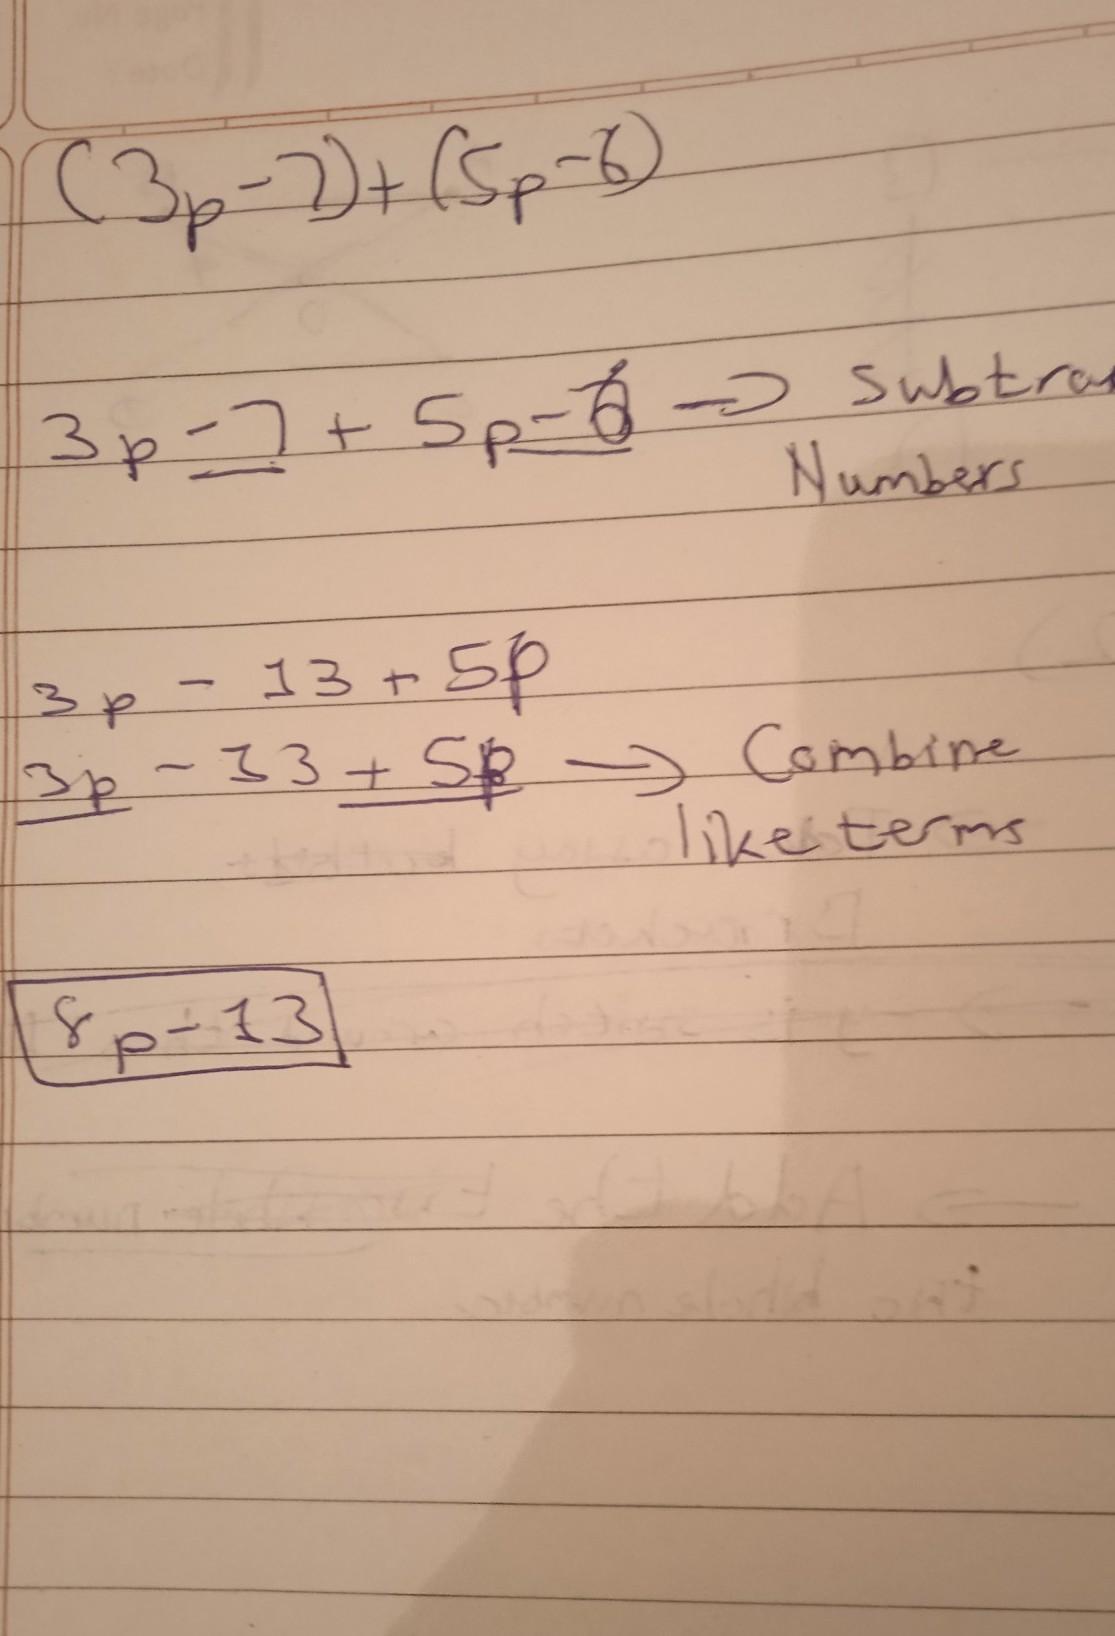 (3p-7)+(5p-6)
3p-7 + 5p-6 → Subtra
Numbers
3p - 13 + 5p
3p - 13 + 5p → Combine
like terms
8p-13